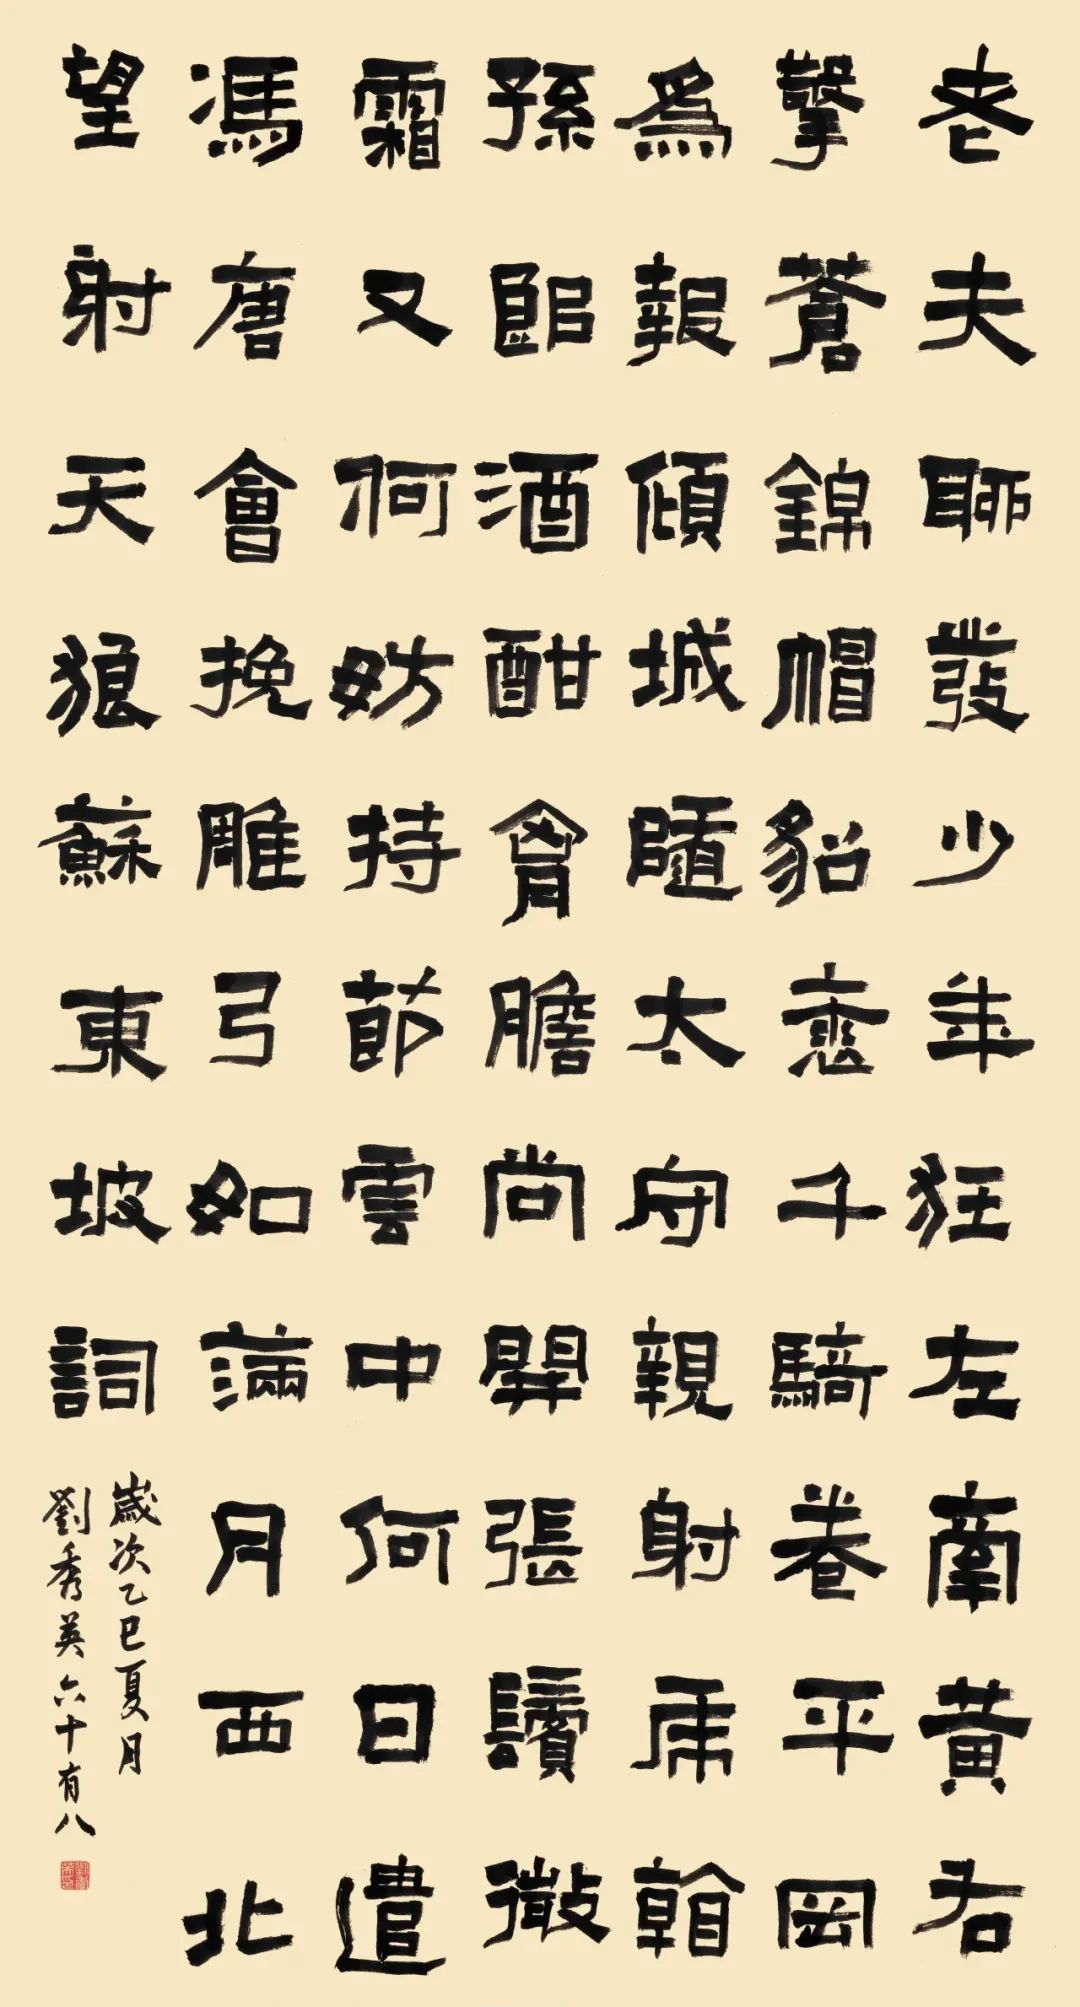 老夫聊發少年狂左牽黃右
擎蒼錦帽貂裘千騎卷平岡
為報傾城隨太守親射虎看
孫郎酒酣胷膽尚開張鬢微
霜又何妨持節雲中何日遣
馮唐會挽雕弓如滿月西北
望射天狼蘇東坡詞
歲次乙巳夏月
劉秀英六十有八